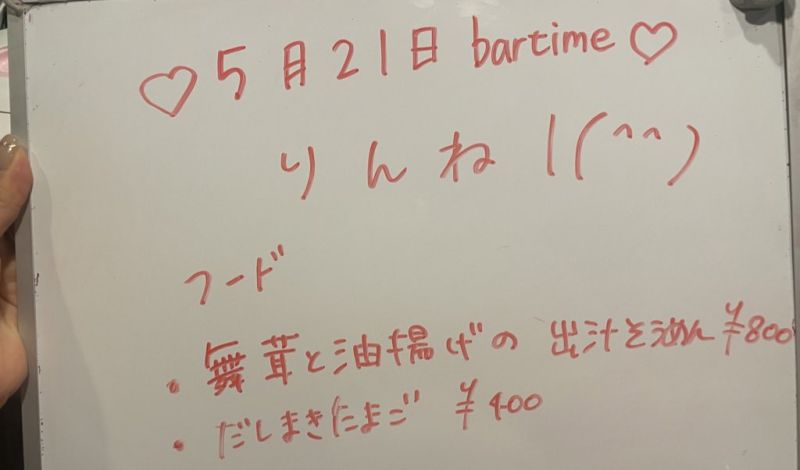 ♡5月21日 bartime♡
りんね1(^^)
フード
・舞茸と油揚げの 出汁そうめん ¥800
・だしまきたまご ¥400